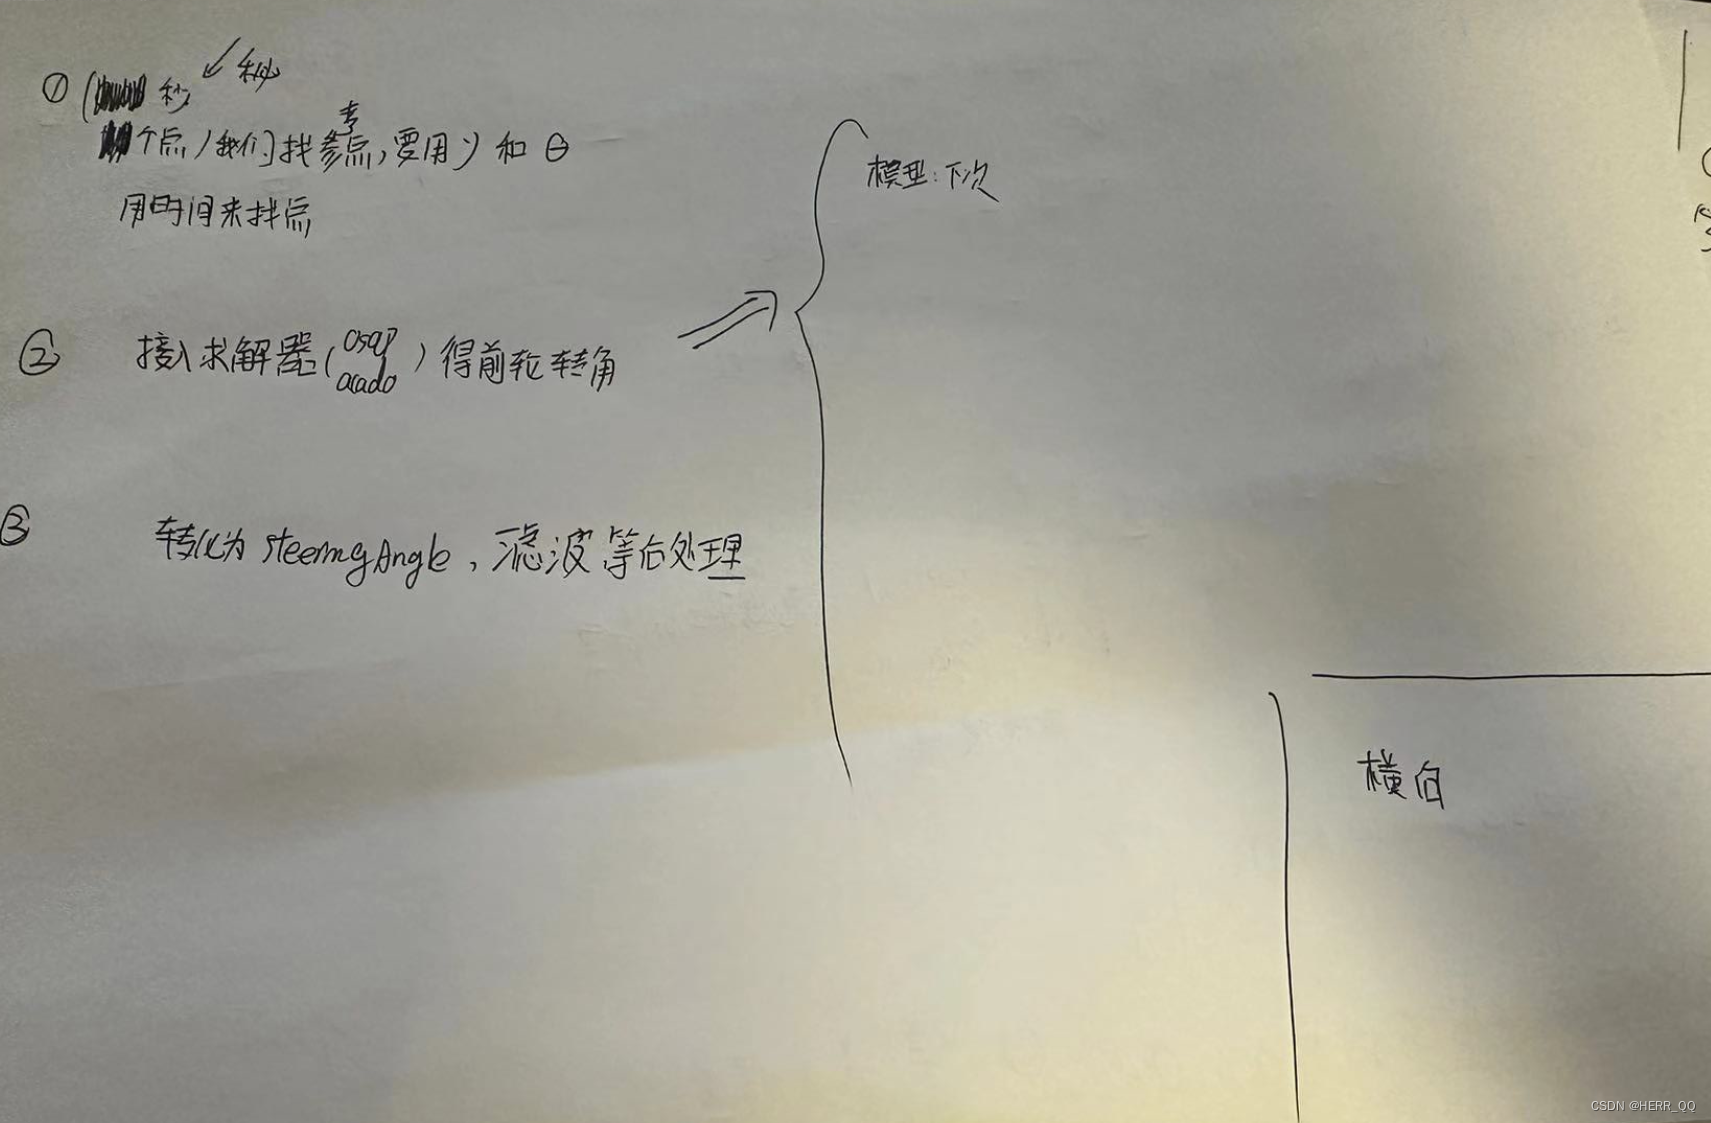 ① ( 秒 ↙ 秘
个点 ) 我们找参考点, 要用 y 和 θ
用时间来找点
② 接入求解器 ( osqp acado ) 得前轮转角
⇒
模型: 下次
③ 转化为 steeringAngle, 滤波等后处理
横向
CSDN @HERR_QQ